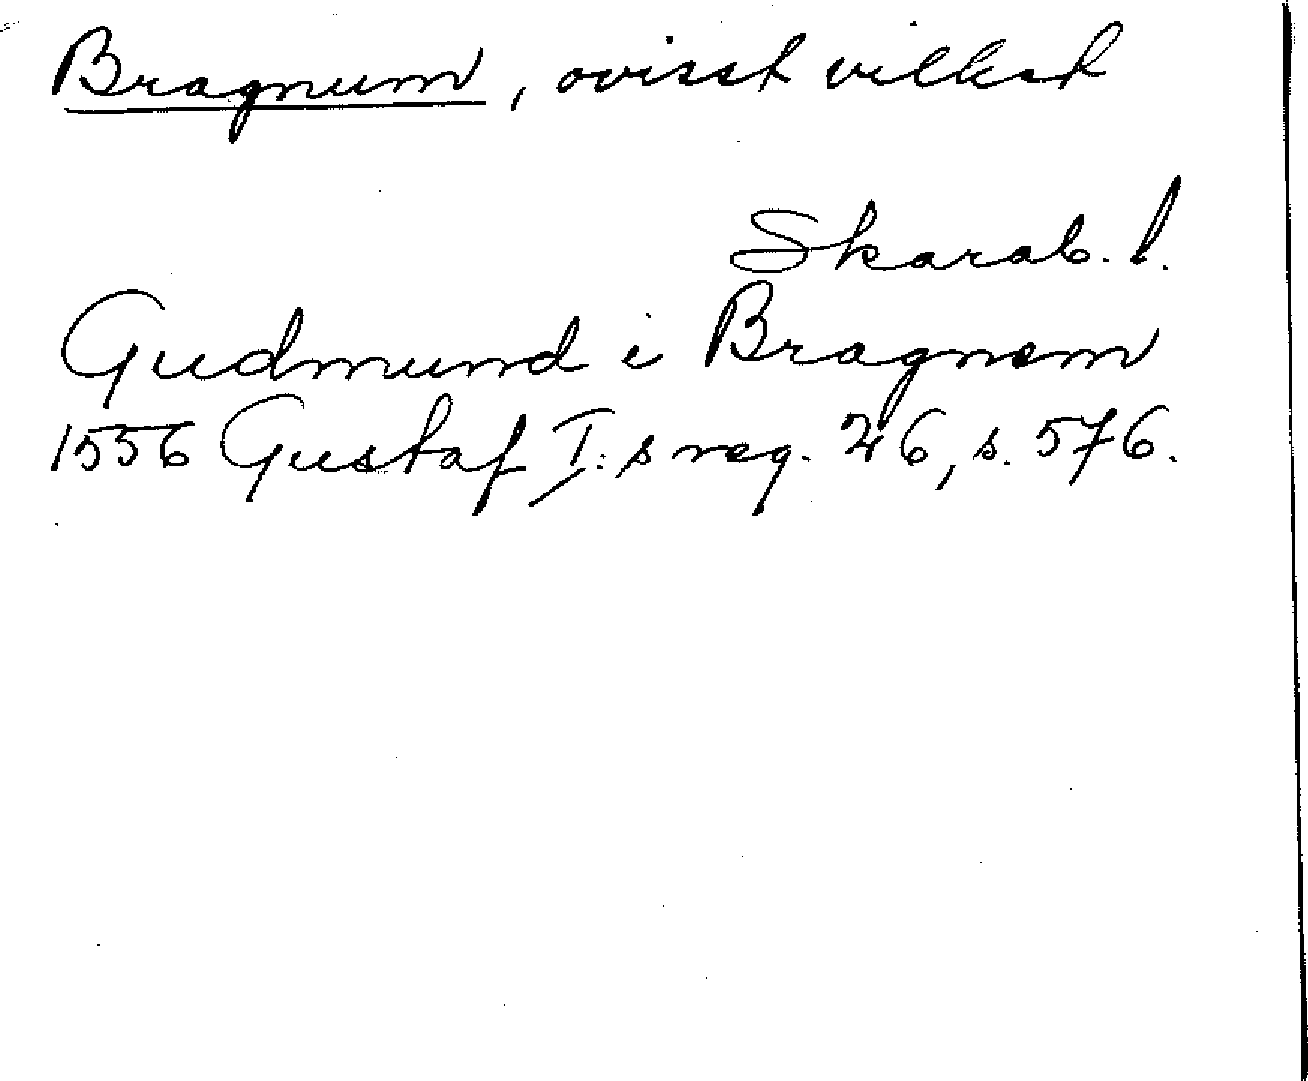 Bragnum, ovisst vilket
Skarab. l.
Gudmund i Bragnem
1556 Gustaf I:s reg. 26, s. 576.